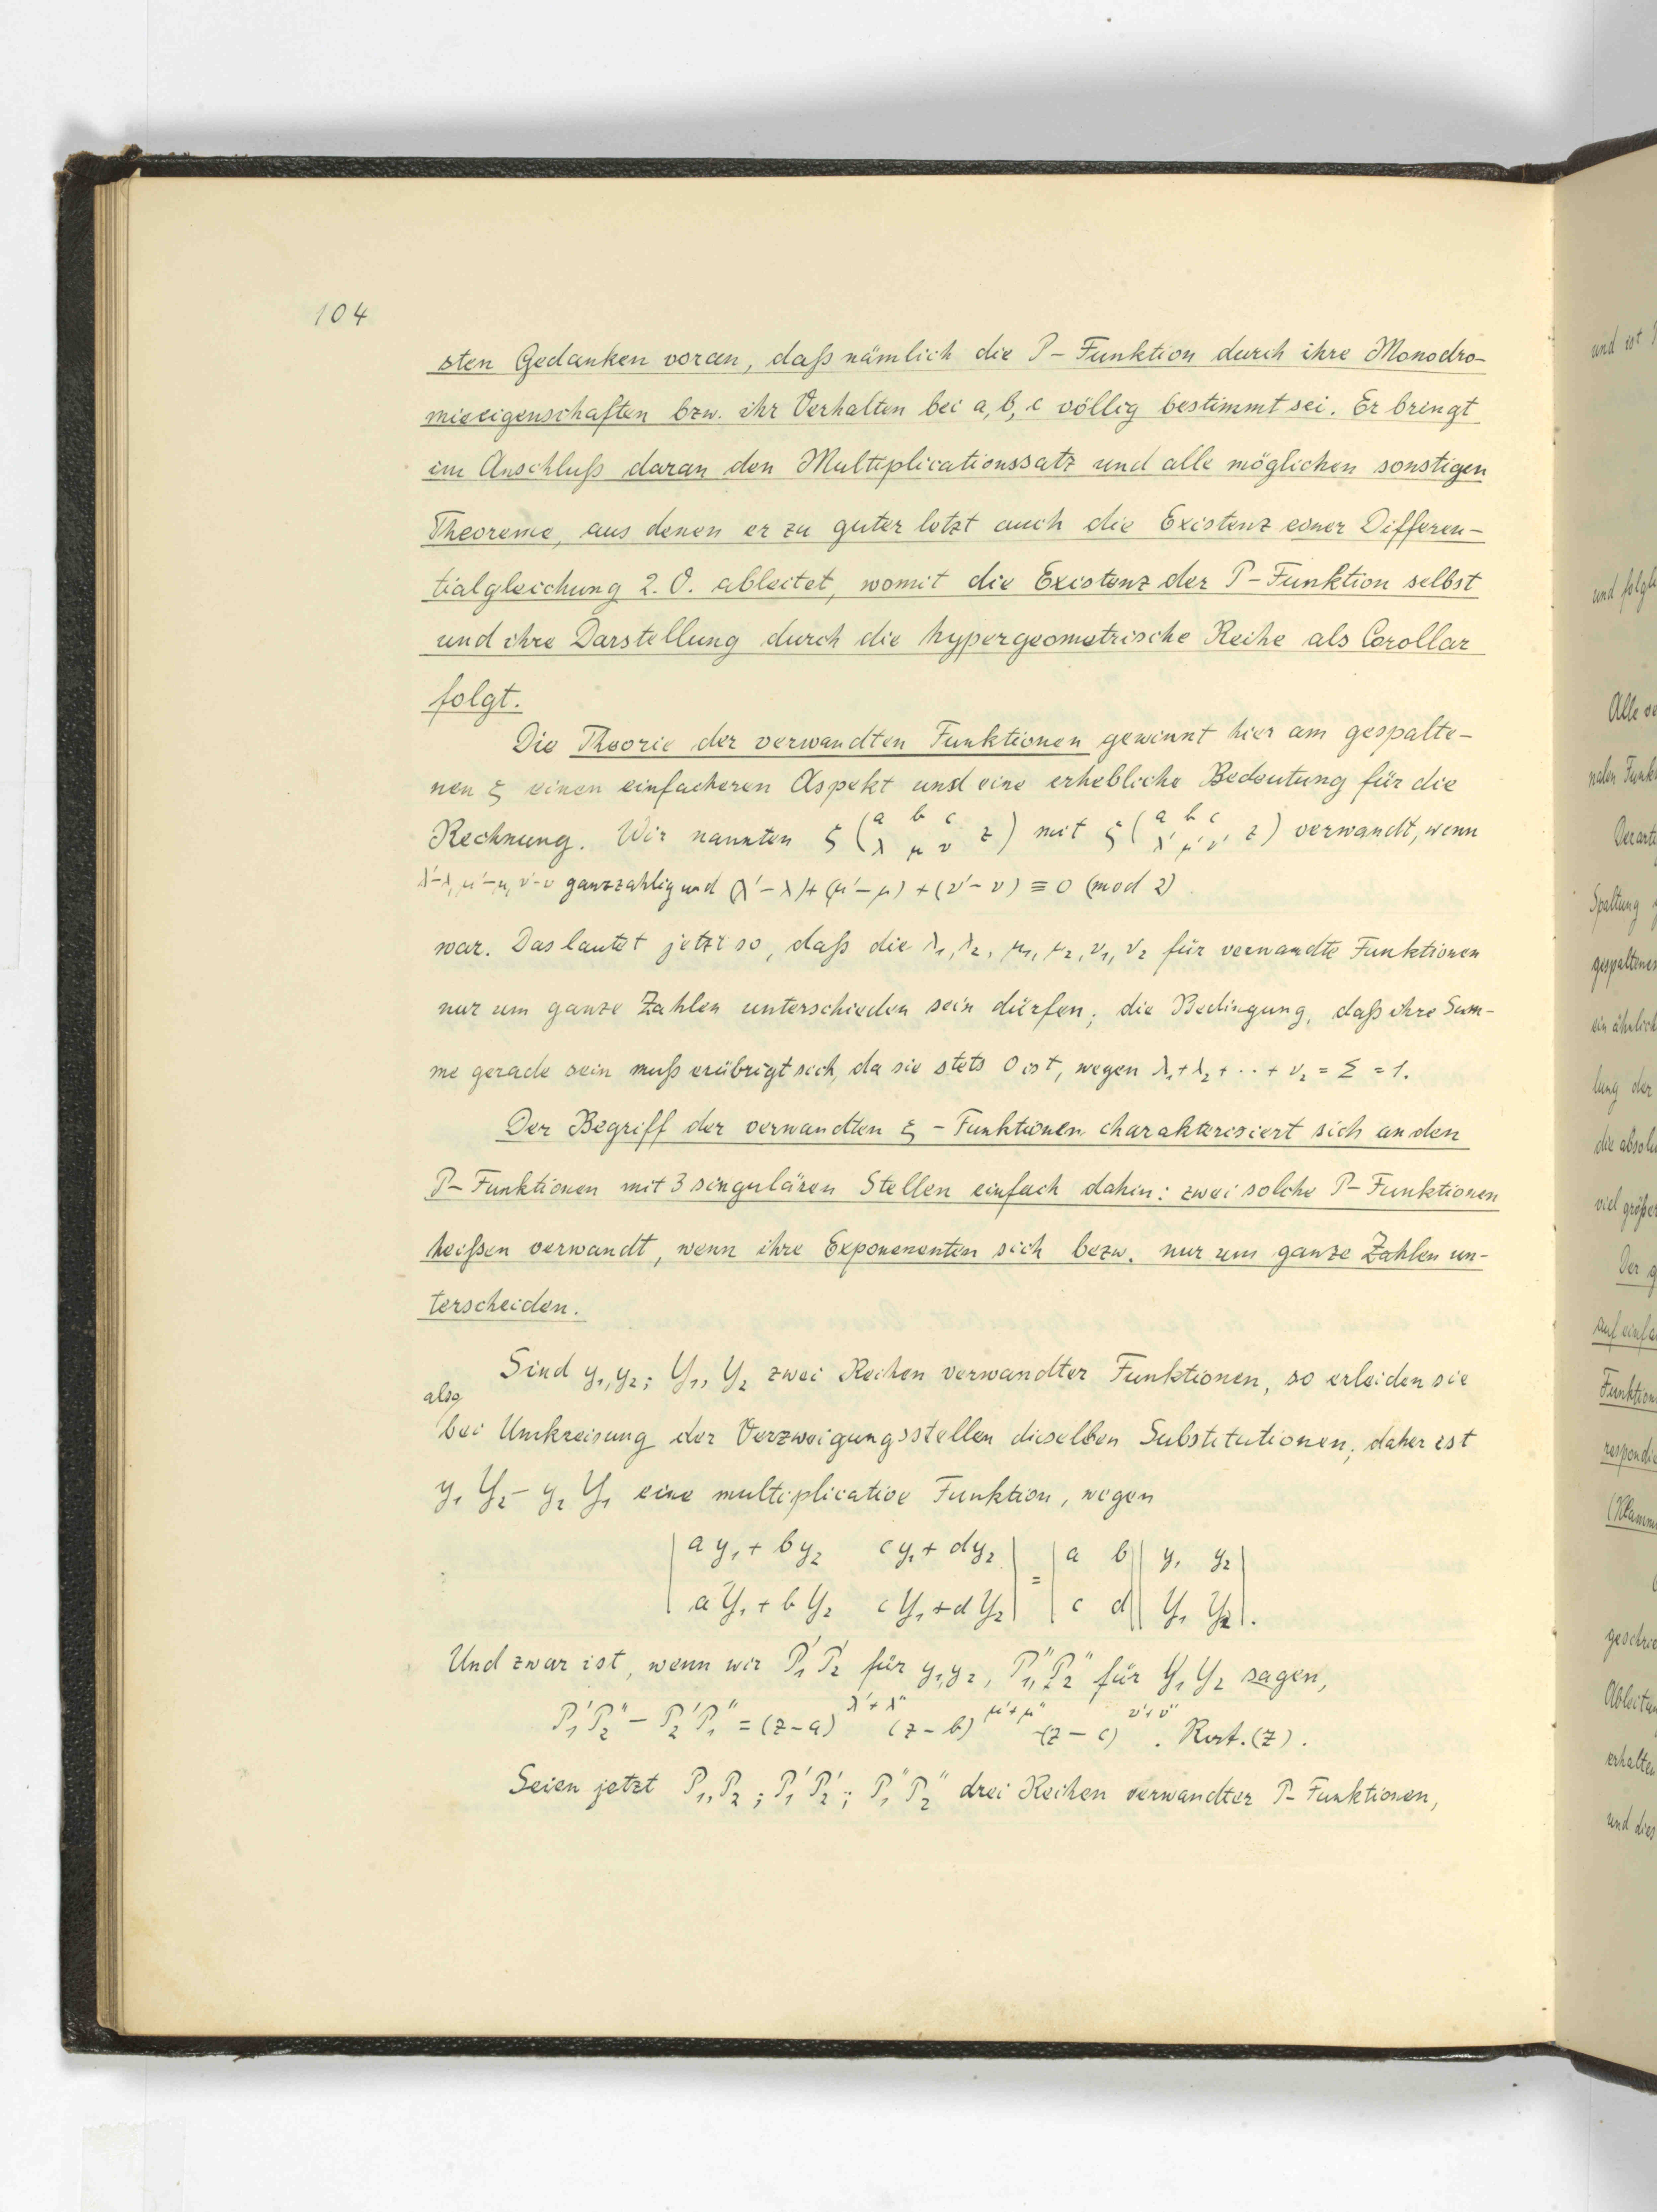 104
sten Gedanken voran, daß nämlich die P-Funktion durch ihre Monodro-
mieeigenschaften bzw. ihr Verhalten bei a, b, c völlig bestimmt sei. Er bringt
im Anschluß daran den Multiplicationssatz und alle möglichen sonstigen
Theoreme, aus denen er zu guter letzt auch die Existenz einer Differen-
tialgleichung 2. O. ableitet, womit die Existenz der P-Funktion selbst
und ihre Darstellung durch die hypergeometrische Reihe als Corollar
folgt.
Die Theorie der verwandten Funktionen gewinnt hier am gespalte-
nen ξ einen einfacheren Aspekt und eine erhebliche Bedeutung für die
Rechnung. Wir nannten ξ (a b c λ μ ν z) mit ξ (a b c λ' μ' ν' z) verwandt, wenn
λ'-λ, μ'-μ, ν'-ν ganzzahlig und (λ'-λ)+(μ'-μ)+(ν'-ν) ≡ 0 (mod 2)
war. Das lautet jetzt so, daß die λ₁, λ₂, μ₁, μ₂, ν₁, ν₂ für verwandte Funktionen
nur um ganze Zahlen unterschieden sein dürfen; die Bedingung, daß ihre Sum-
me gerade sein muß erübrigt sich, da sie stets 0 ist, wegen λ₁+λ₂+··+ν₂ = Σ = 1.
Der Begriff der verwandten ξ-Funktionen charakterisiert sich an den
P-Funktionen mit 3 singulären Stellen einfach dahin: zwei solche P-Funktionen
heißen verwandt, wenn ihre Exponenenten sich bezw. nur um ganze Zahlen un-
terscheiden.
Sind y₁, y₂; Y₁, Y₂ zwei Reihen verwandter Funktionen, so erleiden sie
also
bei Umkreisung der Verzweigungsstellen dieselben Substitutionen; daher ist
y₁ Y₂ - y₂ Y₁ eine multiplicative Funktion, wegen
| a y₁ + b y₂   c y₁ + d y₂ | = | a b | | y₁ y₂ |
| a Y₁ + b Y₂   c Y₁ + d Y₂ |   | c d | | Y₁ Y₂ | .
Und zwar ist, wenn wir P₁' P₂' für y₁, y₂, P₁'', P₂'' für Y₁ Y₂ sagen,
P₁'P₂'' - P₂'P₁'' = (z-a)^{λ'+λ''} (z-b)^{μ'+μ''} (z-c)^{ν'+ν''} . Rat.(z).
Seien jetzt P₁, P₂; P₁' P₂'; P₁'' P₂'' drei Reihen verwandter P-Funktionen,